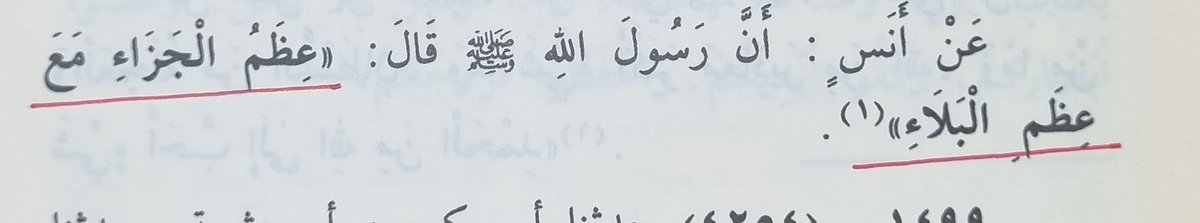 عَنْ أَنَسٍ : أَنَّ رَسُولَ اللهِ ﷺ قَالَ: «عِظَمُ الْجَزَاءِ مَعَ
عِظَمِ الْبَلَاءِ»(١).